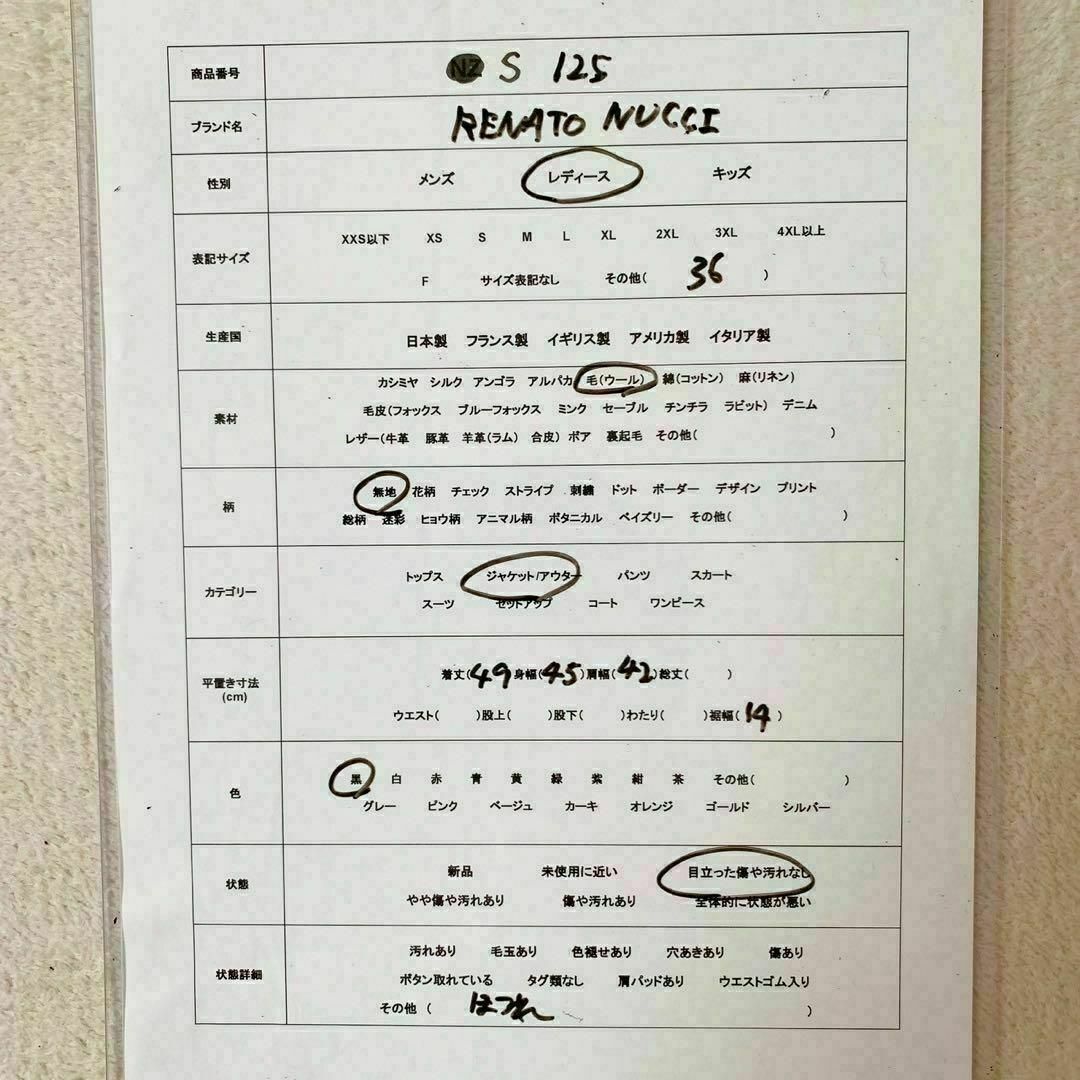 商品番号 NZ S 125
ブランド名 RENATO NUCCI
性別 メンズ レディース キッズ
表記サイズ XXS以下 XS S M L XL 2XL 3XL 4XL以上
F サイズ表記なし その他( 36 )
生産国 日本製 フランス製 イギリス製 アメリカ製 イタリア製
素材 カシミヤ シルク アンゴラ アルパカ 毛(ウール) 綿(コットン) 麻(リネン)
毛皮(フォックス ブルーフォックス ミンク セーブル チンチラ ラビット) デニム
レザー(牛革 豚革 羊革(ラム) 合皮) ボア 裏起毛 その他( )
柄 無地 花柄 チェック ストライプ 刺繍 ドット ボーダー デザイン プリント
総柄 迷彩 ヒョウ柄 アニマル柄 ボタニカル ペイズリー その他( )
カテゴリー トップス ジャケット/アウター パンツ スカート
スーツ セットアップ コート ワンピース
平置き寸法 着丈(49 身幅(45)肩幅(42)総丈( )
(cm) ウエスト( )股上( )股下( )わたり( )裾幅(14 )
色 黒 白 赤 青 黄 緑 紫 紺 茶 その他( )
グレー ピンク ベージュ カーキ オレンジ ゴールド シルバー
状態 新品 未使用に近い 目立った傷や汚れなし
やや傷や汚れあり 傷や汚れあり 全体的に状態が悪い
状態詳細 汚れあり 毛玉あり 色褪せあり 穴あきあり 傷あり
ボタン取れている タグ類なし 肩パッドあり ウエストゴム入り
その他 ( ほつれ )